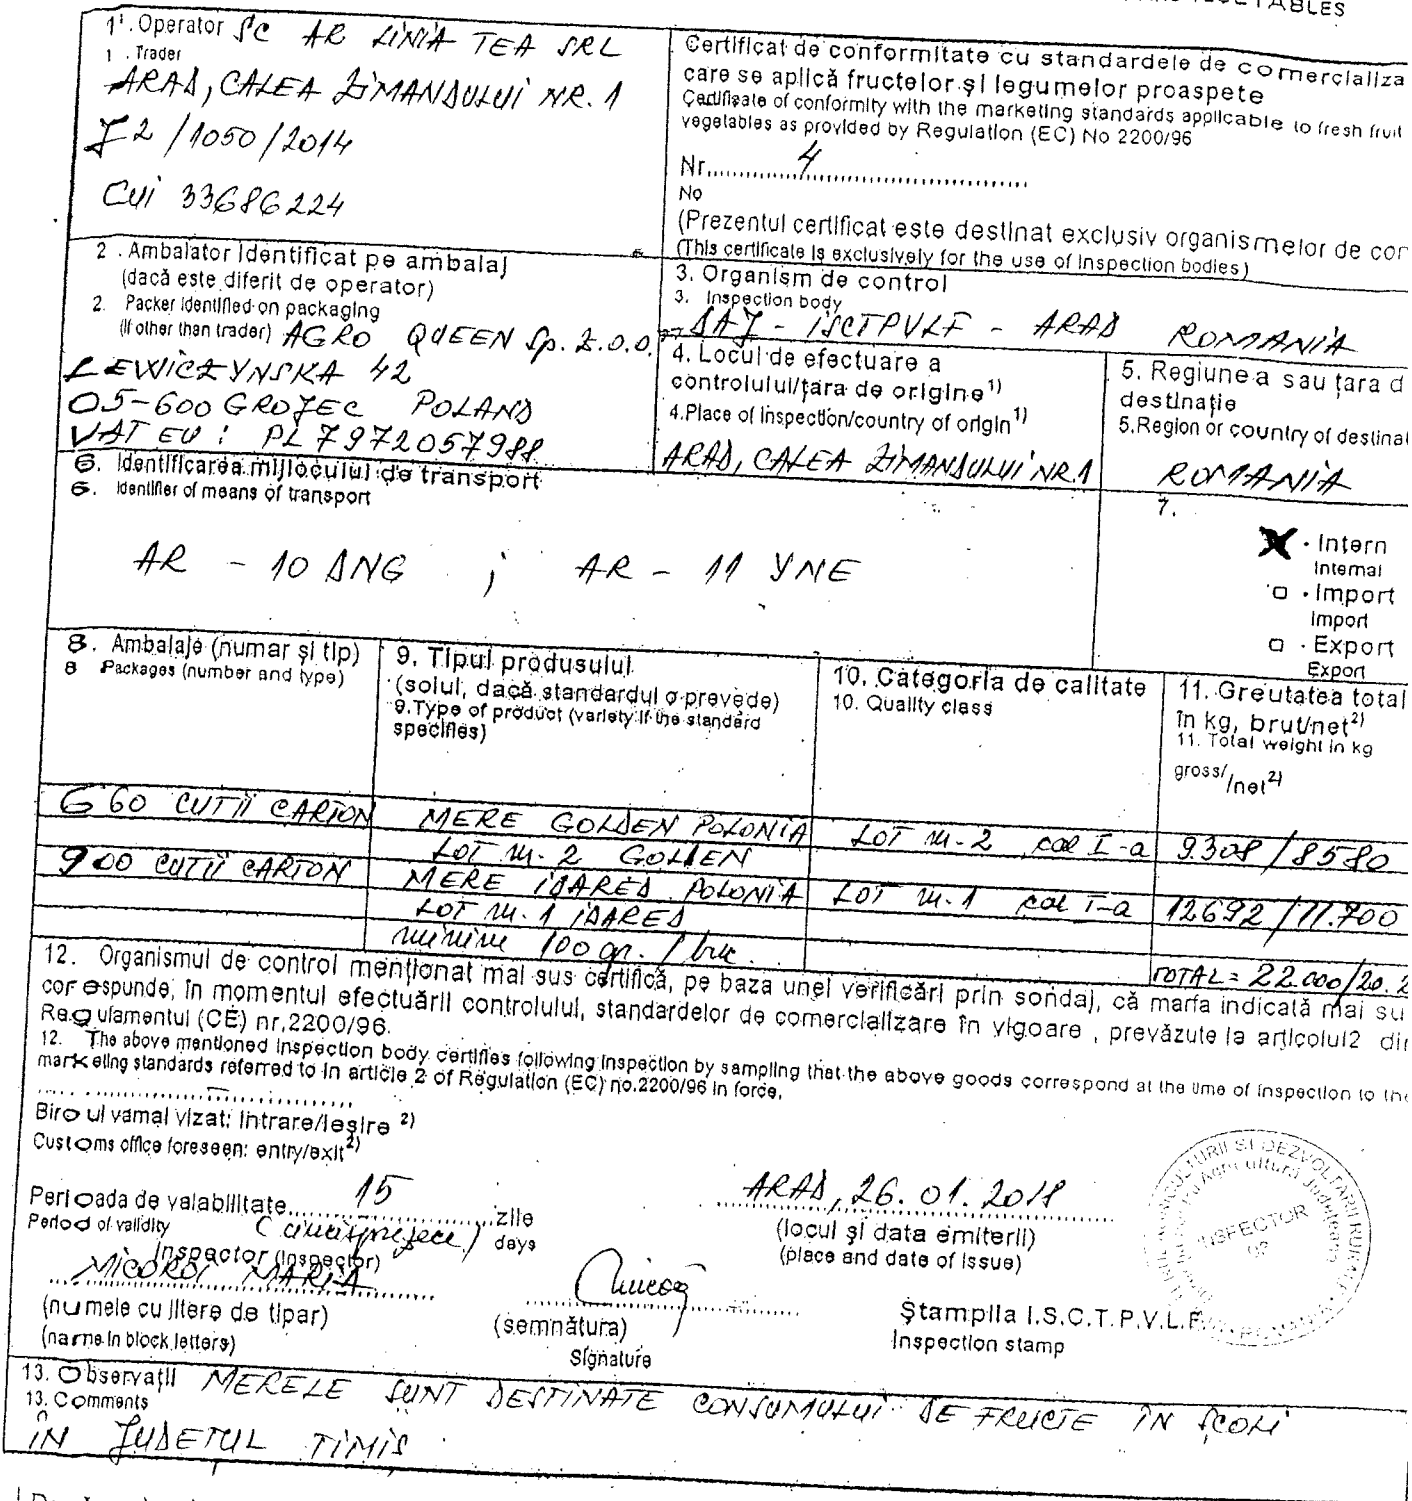 ABLES
1. Operator SC AR LINIA TEA SRL
1. Trader
ARAD, CALEA ZIMANDULUI NR. 1
J2/1050/2014
Cui 33686224
Certificat de conformitate cu standardele de comercializa
care se aplică fructelor și legumelor proaspete
Certificate of conformity with the marketing standards applicable to fresh fruit
vegetables as provided by Regulation (EC) No 2200/96
Nr. 4
No
(Prezentul certificat este destinat exclusiv organismelor de con
(This certificate is exclusively for the use of inspection bodies)
2. Ambalator identificat pe ambalaj
(dacă este diferit de operator)
2. Packer identified on packaging
(if other than trader) AGRO QUEEN Sp. Z.O.O.
LEWICZYNSKA 42
05-600 GROJEC POLAND
VAT EU: PL 7972057988
3. Organism de control
3. Inspection body
DAJ - ISCTPVLF - ARAD ROMANIA
4. Locul de efectuare a
controlului/țara de origine1)
4. Place of inspection/country of origin1)
ARAD, CALEA ZIMANDULUI NR.1
5. Regiunea sau țara d
destinație
5. Region or country of destinat
ROMANIA
6. Identificarea mijlocului de transport
6. Identifier of means of transport
AR - 10 ANG ; AR - 11 YNE
7.
X - Intern
Internal
□ - Import
Import
□ - Export
Export
8. Ambalaje (numar și tip)
8 Packages (number and type)
9. Tipul produsului
(soiul, dacă standardul o prevede)
9. Type of product (variety if the standard
specifies)
10. Categoria de calitate
10. Quality class
11. Greutatea total
în kg, brut/net2)
11. Total weight in kg
gross//net2)
660 CUTII CARTON MERE GOLDEN POLONIA LOT nr. 2 cal I-a 9308/8580
LOT nr. 2 GOLDEN
900 CUTII CARTON MERE IDARED POLONIA LOT nr. 1 cal I-a 12692/11.700
LOT nr. 1 IDARED
minim 100 gr. / buc.
TOTAL = 22.000/20.2
12. Organismul de control menționat mai sus certifică, pe baza unei verificări prin sondaj, că marfa indicată mai su
corespunde, în momentul efectuării controlului, standardelor de comercializare în vigoare, prevăzute la articolul2 din
Regulamentul (CE) nr.2200/96.
12. The above mentioned inspection body certifies following inspection by sampling that the above goods correspond at the time of inspection to the
marketing standards referred to in article 2 of Regulation (EC) no.2200/96 in force.
Biroul vamal vizat: intrare/ieșire 2)
Customs office foreseen: entry/exit2)
Perioada de valabilitate 15 zile
Period of validity (cincisprezece) days
ARAD, 26.01.2018
(locul și data emiterii)
(place and date of issue)
Inspector (Inspector)
NICOROI MARIA
(numele cu litere de tipar)
(name in block letters)
(semnătura)
Signature
Ștampila I.S.C.T.P.V.L.F.
Inspection stamp
INSPECTOR
13. Observații MERELE SUNT DESTINATE CONSUMULUI DE FRUCTE ÎN ȘCOLI
13. Comments
ÎN JUDEȚUL TIMIȘ